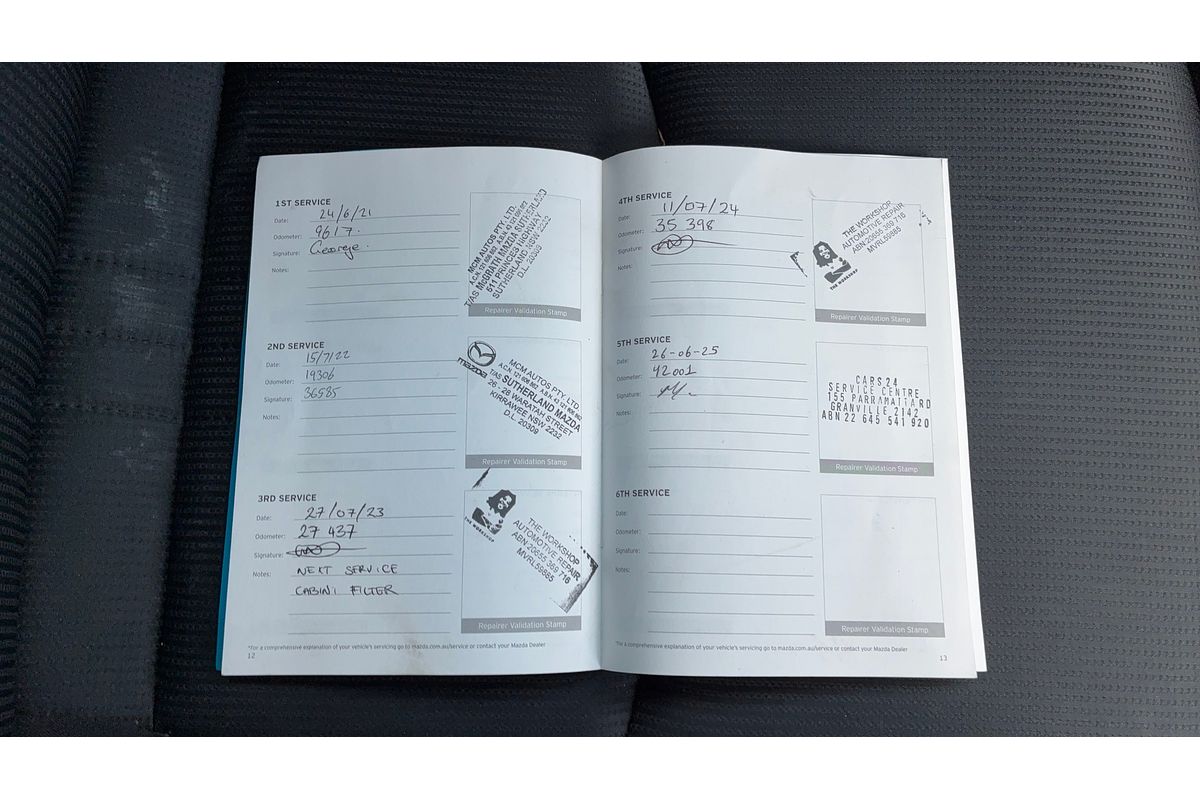 1ST SERVICE
Date: 24/6/21
Odometer: 9617.
Signature: George.
Notes:
MCM AUTOS PTY. LTD.
A.C.N. 121 606 862 A.B.N. 43 121 606 862
T/AS McGRATH MAZDA SUTHERLAND
511 PRINCES HIGHWAY
SUTHERLAND NSW 2232
D.L. 20309
Repairer Validation Stamp
2ND SERVICE
Date: 15/7/22
Odometer: 19306
Signature: 36585
Notes:
mazda
MCM AUTOS PTY. LTD.
A.C.N. 121 606 862 A.B.N. 43 121 606 862
T/AS SUTHERLAND MAZDA
26 - 28 WARATAH STREET
KIRRAWEE NSW 2232
D.L. 20309
Repairer Validation Stamp
3RD SERVICE
Date: 27/07/23
Odometer: 27 437
Signature:
Notes: NEXT SERVICE
CABINI FILTER
THE WORKSHOP
THE WORKSHOP
AUTOMOTIVE REPAIR
ABN:20655 369 716
MVRL59885
Repairer Validation Stamp
*For a comprehensive explanation of your vehicle's servicing go to mazda.com.au/service or contact your Mazda Dealer
12
4TH SERVICE
Date: 11/07/24
Odometer: 35 398
Signature:
Notes:
THE WORKSHOP
THE WORKSHOP
AUTOMOTIVE REPAIR
ABN:20655 369 716
MVRL59885
Repairer Validation Stamp
5TH SERVICE
Date: 26-06-25
Odometer: 42001
Signature:
Notes:
CARS24
SERVICE CENTRE
155 PARRAMATTARD
GRANVILLE 2142
ABN 22 645 541 920
Repairer Validation Stamp
6TH SERVICE
Date:
Odometer:
Signature:
Notes:
Repairer Validation Stamp
*For a comprehensive explanation of your vehicle's servicing go to mazda.com.au/service or contact your Mazda Dealer
13